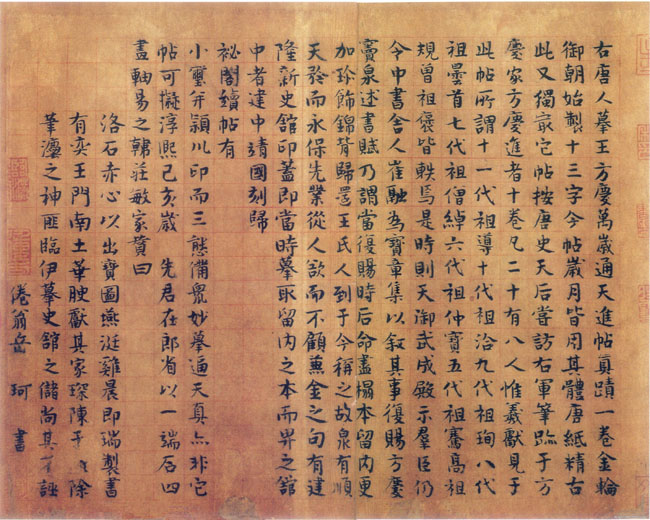 右唐人摹王方慶萬歲通天進帖真蹟一卷金輪
御朝始製十三字今帖歲月皆用其體唐紙精古
此又獨最它帖按唐史天后嘗訪右軍筆跡于方
慶家方慶進者十卷凡二十有八人惟羲獻見于
此帖所謂十一代祖導十代祖洽九代祖珣八代
祖曇首七代祖僧綽六代祖仲寶五代祖騫高祖
規曾祖褒皆軼焉是時則天御武成殿示羣臣仍
令中書舍人崔融為寶章集以叙其事復賜方慶
竇泉述書賦乃謂當復賜時后命盡搨本留內更
加珍飾錦背歸還王氏人到于今稱之故泉有順
天矜而永保先業從人欲而不顧兼金之句有建
隆新史館印蓋即當時摹取留內之本而畀之館
中者建中靖國刻歸
祕閣續帖有
小璽并潁川印而三態備眾妙摹逼天真亦非它
帖可擬淳熙己亥歲 先君在郎省以一端石四
畫軸易之韓莊敏家贊曰
洛石赤心以出寶圖燕涎雞晨即瑞製書
有奕王門南土華腴獻其家琛陳于 除
筆瀍之神匪臨伊摹史館之儲尚其 誣
倦翁岳 珂 書